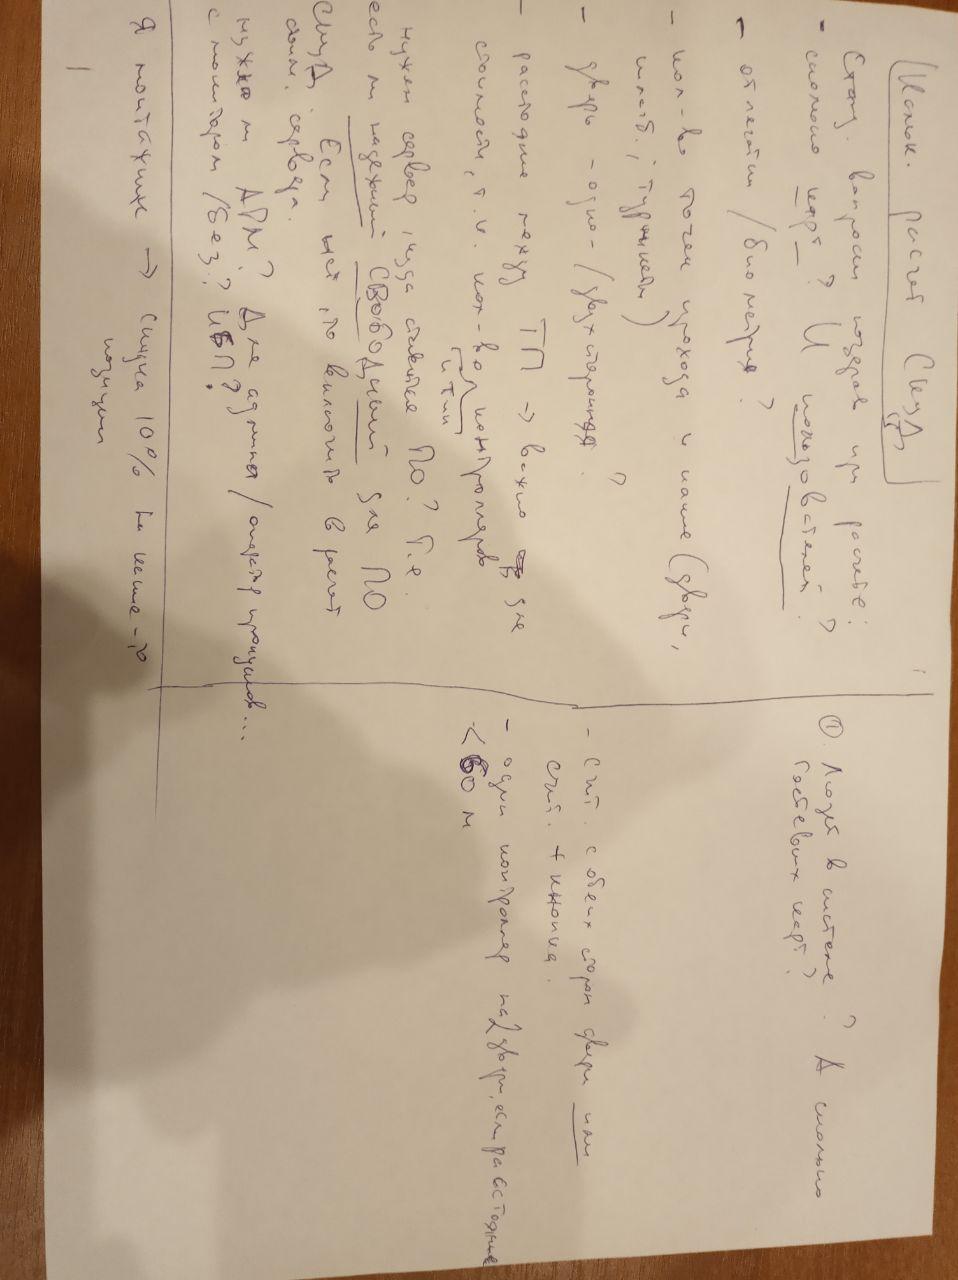 Кальк. расчет СКУД
Станд. вопросы при расчете:
- сколько карт? И пользователей?
- отпечатки / биометрия?
- кол-во точек прохода и какие (двери,
шлагб.; турникеты)
- дверь - одно- / двухсторонняя?
- расстояние между ТП → важно для
стоимости, т.к. кол-во контроллеров
и тип
нужен сервер, куда ставится ПО? Т.е.
есть ли надежный СВОБОДНЫЙ для ПО
СКУД. Если нет, то включить в расчет
стоим. сервера.
нужно ли АРМ? Для админа / оператор пропусков...
с монитором / без? ИБП?
Я монтажник → скидка 10% на какие-то
позиции
① Людей в системе? А сколько
гостевых карт?
- Счит. с обеих сторон двери или
счит. + кнопка.
- один контроллер на 2 двери, если расстояние
< 60 м